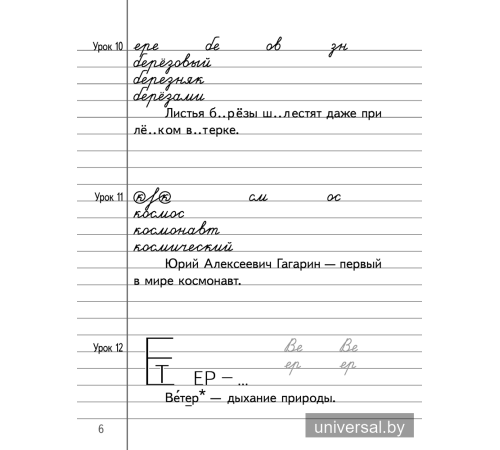 Урок 10 ере бе ов зн
берёзовый
березняк
берёзами
Листья б..рёзы ш..лестят даже при
лё..ком в..терке.
Урок 11 к см ос
космос
космонавт
космический
Юрий Алексеевич Гагарин — первый
в мире космонавт.
Урок 12 Ве Ве
ер ер
Е Т ЕР – ...
Ве́тер* — дыхание природы.
6
universal.by